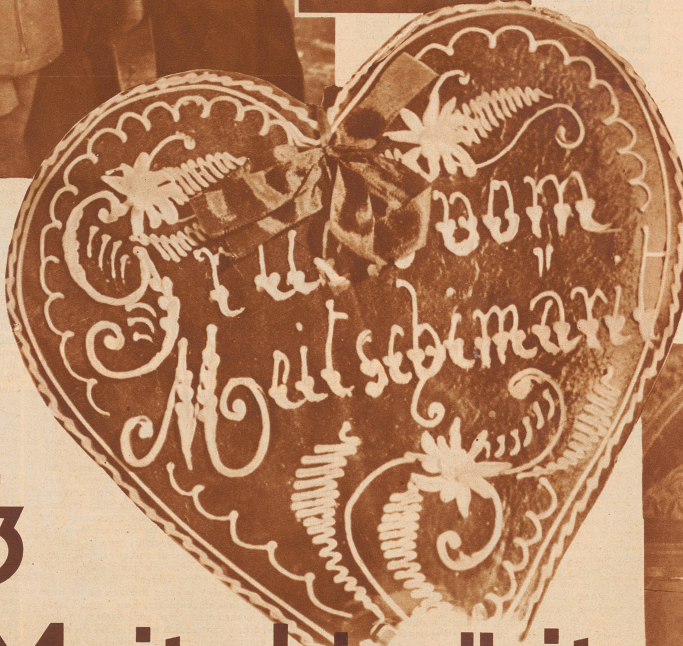 Gruss vom
Meitschimärit
3